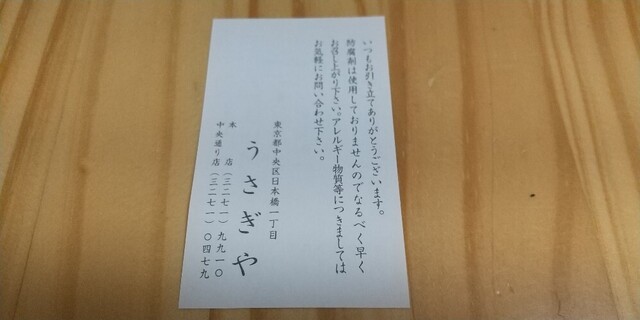 いつもお引き立てありがとうございます。
防腐剤は使用しておりませんのでなるべく早く
お召し上がり下さい。アレルギー物質等につきましては
お気軽にお問い合わせ下さい。
東京都中央区日本橋一丁目
うさぎや
本店（三二七一）九九一〇
中央通り店（三二七一）〇四七九